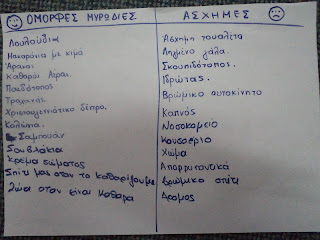 ΟΜΟΡΦΕΣ ΜΥΡΩΔΙΕΣ
Λουλούδια
Μακαρόνια με κιμά
Άρωμα
Καθαρός Αέρας.
Παιδότοπος
Τραχανάς
Χριστουγεννιάτικο δέντρο.
Κολώνια.
Σαμπουάν
Σουβλάκια
κρέμα σώματος
Σπίτι μας όταν το καθαρίζουμε
Ζώα όταν είναι καθαρά
ΑΣΧΗΜΕΣ
Άσχημη τουαλέτα
Ληγμένο γάλα.
Σκουπιδότοπος.
Ιδρώτας.
Βρώμικο αυτοκίνητο
Καπνός
Νοσοκομείο
Καυσαέριο
Χώμα
Απορρυπαντικά
Βρώμικο σπίτι
Δρόμος